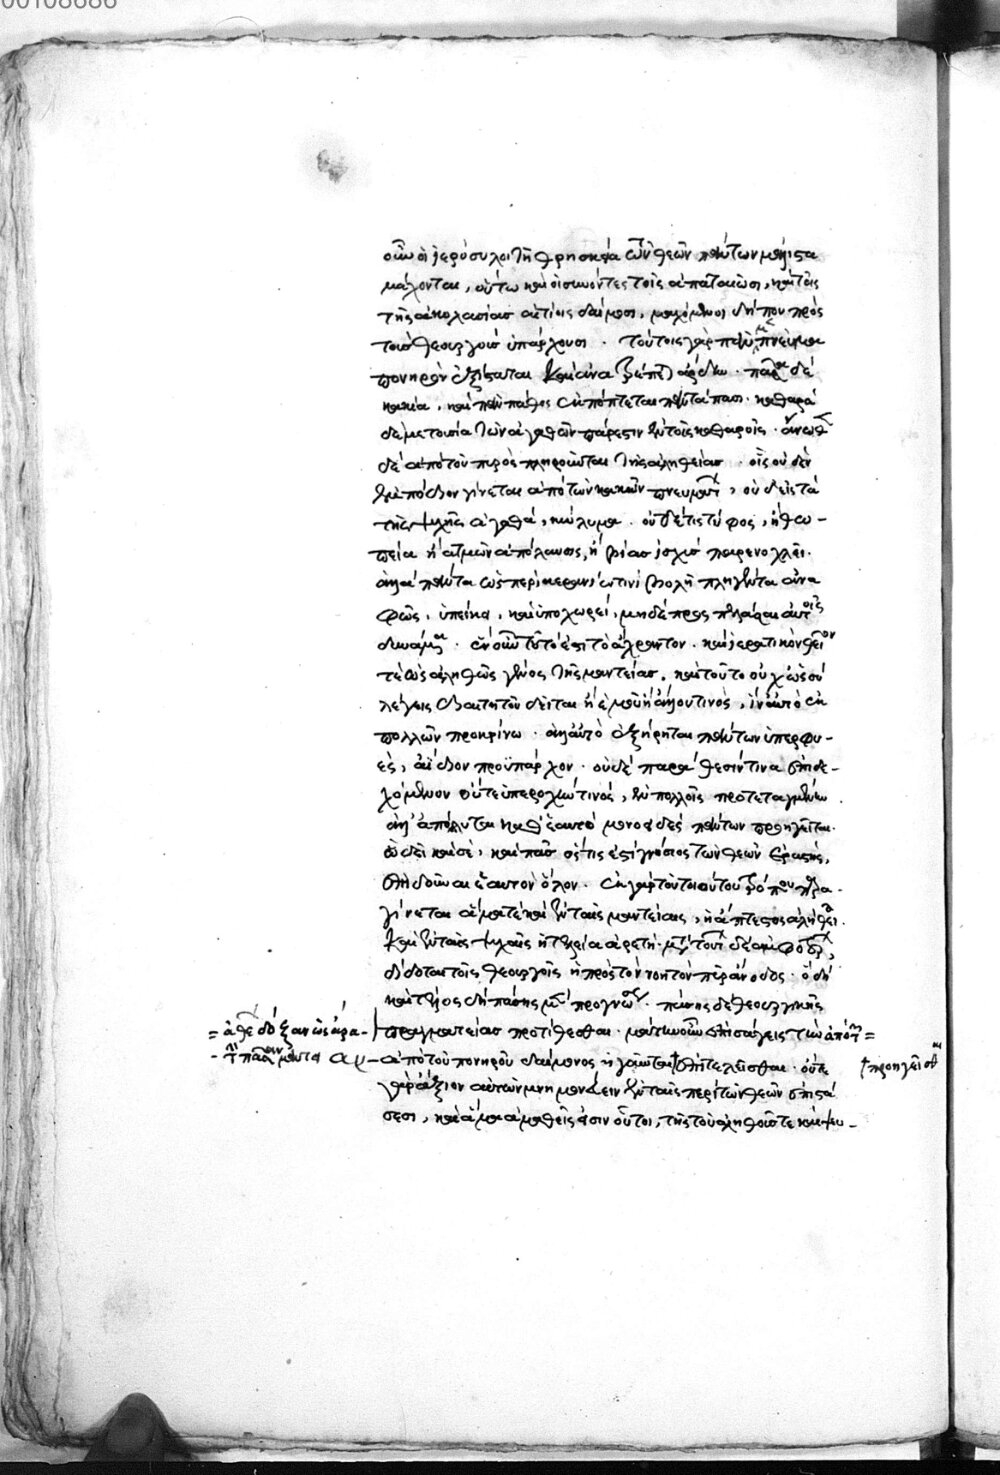 οὖν οἱ ἱερόσυλοι τῇ θρησκείᾳ τῶν θεῶν πάντων μάλιστα
μάχονται, οὕτω καὶ οἱ συνόντες τοῖς ἀπατεῶσι, καὶ τοῖς
τῆς ἀκολασίας αἰτίοις δαίμοσι, μαχόμενοι δήπου πρὸς
τοὺς θεουργοὺς ὑπάρχουσι. τούτοις γὰρ πᾶν μὲν πνεῦμα
πονηρὸν ἐξίσταται καὶ ἀνατρέπεται ἄρδην. πᾶσα δὲ
κακία, καὶ πᾶν πάθος ἐκκόπτεται παντάπασι. καθαρὰ
δὲ μετουσία τῶν ἀγαθῶν πάρεστιν ἐν τοῖς καθαροῖς. ἄνωθεν
δὲ ἀπὸ τοῦ πυρὸς πληροῦνται τῆς ἀληθείας. οἷς οὐδὲν
ἐμπόδιον γίνεται ἀπὸ τῶν κακῶν πνευμάτων, οὐδ' εἰς τὰ
τῆς ψυχῆς ἀγαθά, κώλυμα. οὐδέ τις τύφος, ἢ θω-
πεία ἢ ἀτμῶν ἀπόλαυσις, ἢ βίας ἰσχὺς παρενοχλεῖ.
ἀλλὰ πάντα ὥσπερ κεραυνίῳ τινὶ βολῇ πληγέντα ἀνα
φῶς, ὑπείκει, καὶ ὑποχωρεῖ, μηδὲ προσπελάσαι αὐτοῖς
δυνάμενα. ἓν οὖν τοῦτό ἐστι τὸ ἄχραντον. καὶ ἱερατικὸν θεῖον
τε ὡς ἀληθῶς γένος τῆς μαντείας. καὶ τοῦτο οὐχ ὡς σὺ
λέγεις διαιτητοῦ δεῖται ἢ ἐμοῦ ἢ ἄλλου τινός, ἵν' αὐτὸ ἐκ
πολλῶν προκρίνω. ἀλλ' αὐτὸ ἐξῄρηται πάντων ὑπερφυ-
ές, ἀΐδιον προϋπάρχον. οὐδὲ παράθεσίν τινα ἐπιδε-
χόμενον οὔτε ὑπεροχήν τινος, ἐν πολλοῖς προτεταγμένον.
ἀλλ' ἀπόλυται καθ' ἑαυτὸ μονοειδὲς πάντων προηγεῖται.
ᾧ δεῖ καὶ σέ, καὶ πᾶς ὅστις ἐστὶ γνήσιος τῶν θεῶν ἐραστής,
ἐπιδοῦναι ἑαυτὸν ὅλον. ἐκ γὰρ τοῦ τοιούτου τρόπου παρα-
γίνεται ἅμα τε καὶ ἐν ταῖς μαντείαις, ἡ ἄπταιστος ἀλήθεια.
καὶ ἐν ταῖς ψυχαῖς ἡ τελεία ἀρετή. μετὰ τούτων δὲ ἀμφοτέρων,
δίδοται τοῖς θεουργοῖς ἡ πρὸς τὸ νοητὸν πῦρ ἄνοδος. ὃ δὴ
καὶ τέλος δεῖ πάσης μὲν προγνώσεως. πάσης δὲ θεουργικῆς
= ἀθέων δόξαν ὡς ἄρα πραγματείας προτίθεσθαι. μάτην οὖν ἐπεισάγεις τὴν ἀπὸ τῶν =
ἀπὸ τοῦ πονηροῦ δαίμονος ἡγοῦνται ἐπιτελεῖσθαι. οὔτε
προηγεῖσθαι
γὰρ ἄξιον αὐτῶν μνημονεύειν ἐν ταῖς περὶ τῶν θεῶν ἐπιστά
σεσι, καὶ ἅμα ἀμαθεῖς εἰσιν οὗτοι, τῆς τοῦ ἀληθοῦς τε καὶ ψευ-